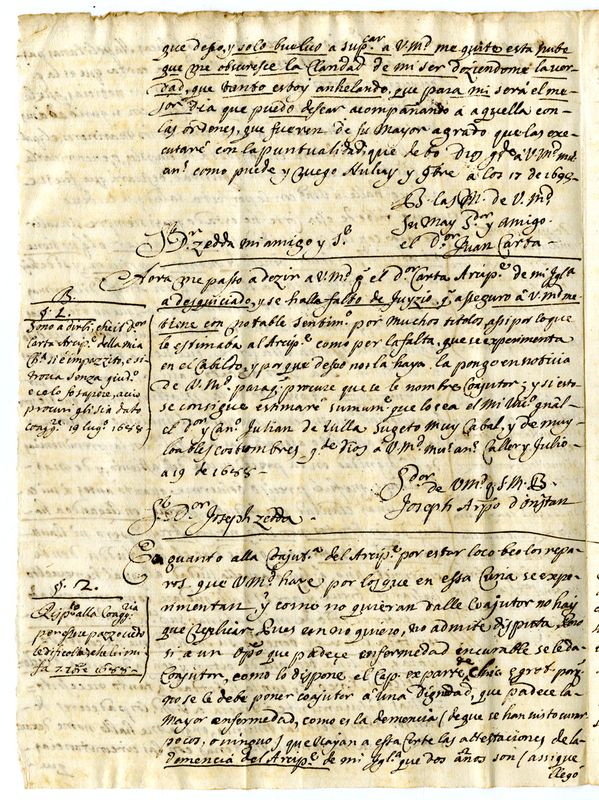 que deseo, y solo buelvo a sup.car a V.Md me quite esta nube
que me obscuresce la Claridad de mi ser diziendome la ver-
dad, que tanto estoy anhelando, que para mi será el me-
jor dia que puedo desear acompañando a aquella con-
las órdenes, que fueren de su Mayor agrado que las exe-
cutaré con la puntualidad, que debo Dios g.de á V.Md
an.s como puede y ruego y los 17 de
B. las M. de V.Md
Su May S.or y Amigo
el D.or Juan Carta -
D.r Zedda mi amigo y S.r
Aora me passo a dezir a V.Md q el D.or Carta Arcip.e de mi Iglª
a desquiciado, y se halla falto de Juyzio, q aseguro á V.Md me
tiene con notable sentim.o por muchos titolos assi por lo que
le estimaba al Arcip.e como por la falta, que se experimenta
en el Cabildo, y porque deseo nos la haya, la pongo en noticia
de V.Md. paraq procure que se le nombre Coajutor; y si esto
se consigue estimaré sumam.e que lo sea el Mi
el D.or Can.o Julian de Lulla sugeto muy Cabel, y de muy
loables costombres, g.de Dios á V.Md m.s an.s Caller y Julio -
a 19 de 1688 -
S.dor
de V.Md q S.M.B.
Joseph Arpo d'oristan
S.r D.or Joseph Zedda -
B.
§. 1.
Sono a dirli, che il D.or
Carta Arcip.e della mia
Chª si è impazzito, e si
trova senza giud.o
e ce lo fo sapere, acciò
procuri gli sia dato
Coagg.e 19 lug.o 1688
En quanto alla Coajut.a del Arcip.e por estar loco beo los repa-
ros, que V.Md haze por los que en essa Curia se expe-
rimentan, y como no quieran dalle Coajutor no hay
que replicar. Pues en no quiero, no admite disputa
si a un Opo que padece enfermedad encurable se le da
Coajutor, como lo dispone el Cap. ex parte de Cleric. egrot. porq
no se le debe poner coajutor á una Dignidad, que padece la
Mayor enfermedad, como es la demencia (de que se han visto curar
pocos, o ninguno) que vayan a esta Corte las attestaciones de la
demencia del Arcip.e de mi Iglª que dos años son (assi que
llegó
§. 2.
Risp.e alla Coagg.ria
per esser pazzo vedo
le dificoltà che le mi
fa 7.bre 1688 -